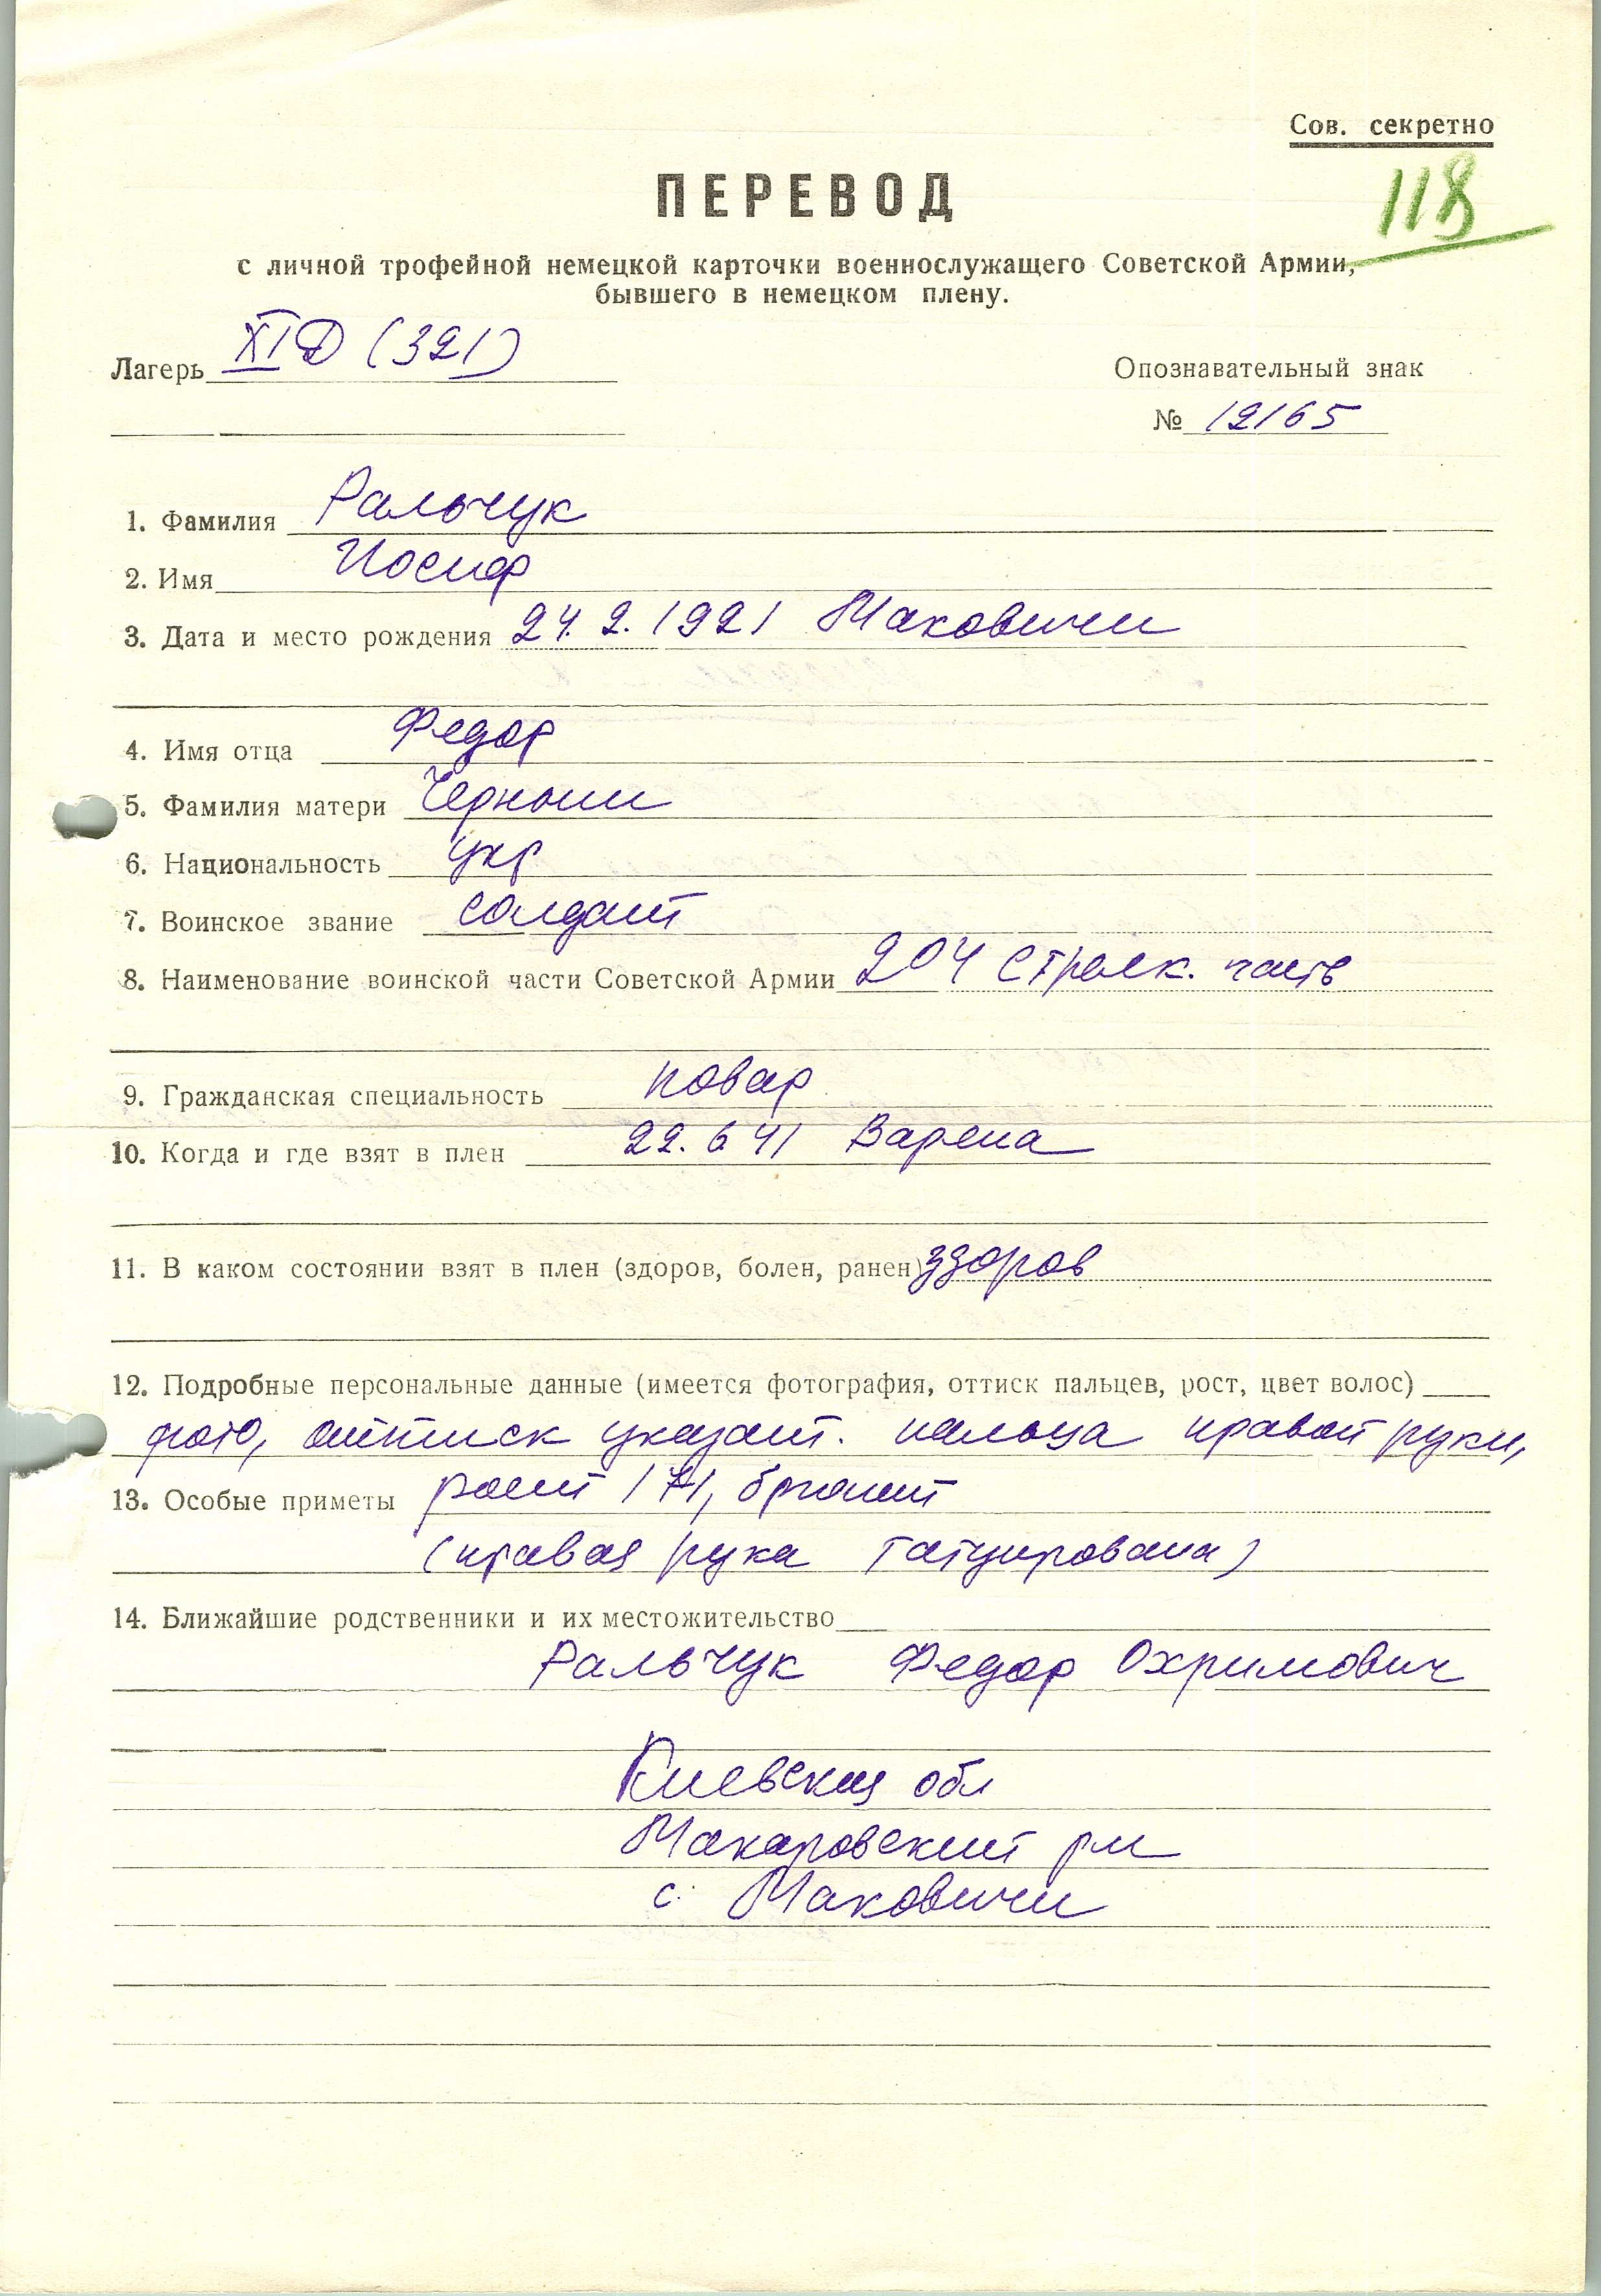 Сов. секретно
118
ПЕРЕВОД
с личной трофейной немецкой карточки военнослужащего Советской Армии,
бывшего в немецком плену.
Лагерь XI D (321)
Опознавательный знак
№ 12165
1. Фамилия Ральчук
2. Имя Иосиф
3. Дата и место рождения 24. 2. 1921 Маковичи
4. Имя отца Федор
5. Фамилия матери Черныш
6. Национальность укр
7. Воинское звание солдат
8. Наименование воинской части Советской Армии 204 стрелк. часть
9. Гражданская специальность повар
10. Когда и где взят в плен 22. 6 41 Варена
11. В каком состоянии взят в плен (здоров, болен, ранен) здоров
12. Подробные персональные данные (имеется фотография, оттиск пальцев, рост, цвет волос)
фото, оттиск указат. пальца правой руки,
13. Особые приметы рост 171, брюнет
(правая рука татуирована)
14. Ближайшие родственники и их местожительство
Ральчук Федор Охримович
Киевская обл
Макаровский р-н
с. Маковичи